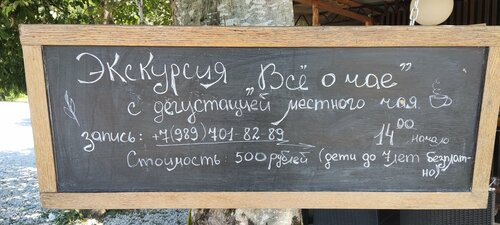 Экскурсия „Всё о чае”
с дегустацией местного чая.
запись: +7(989)701-82-89 14⁰⁰ начало
Стоимость: 500 рублей (дети до 7 лет бесплатно)